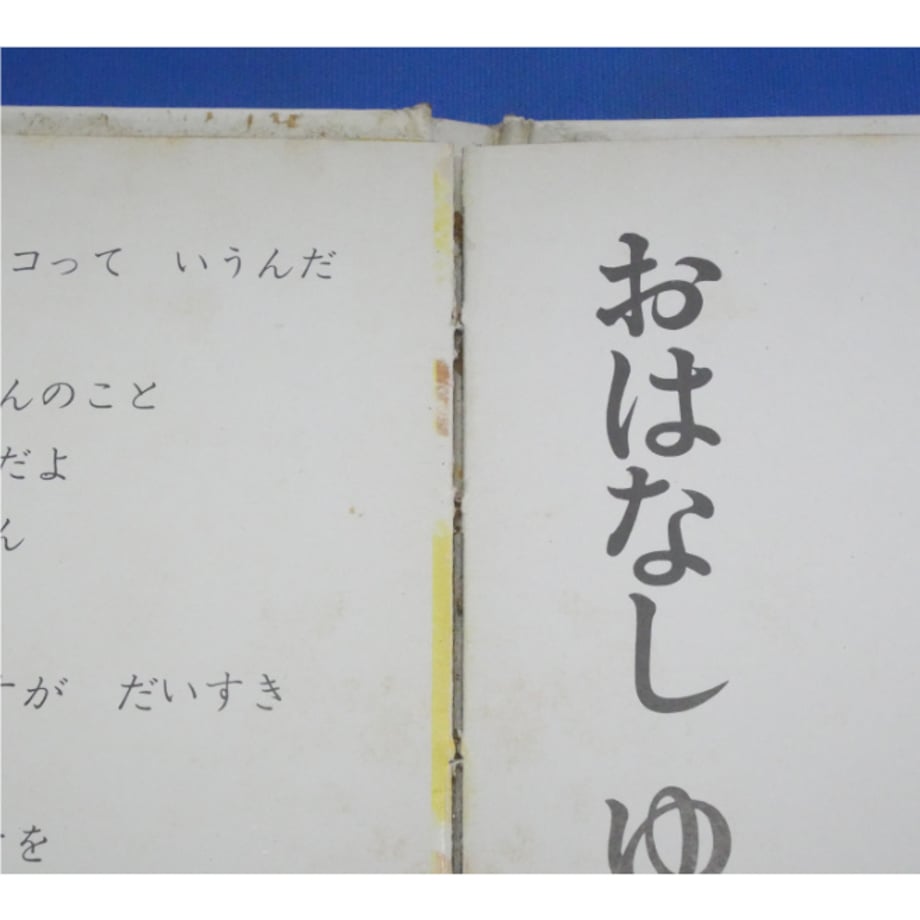 コって いうんだ
んのこと
だよ
ん
が だいすき
を
おはなし ゆ